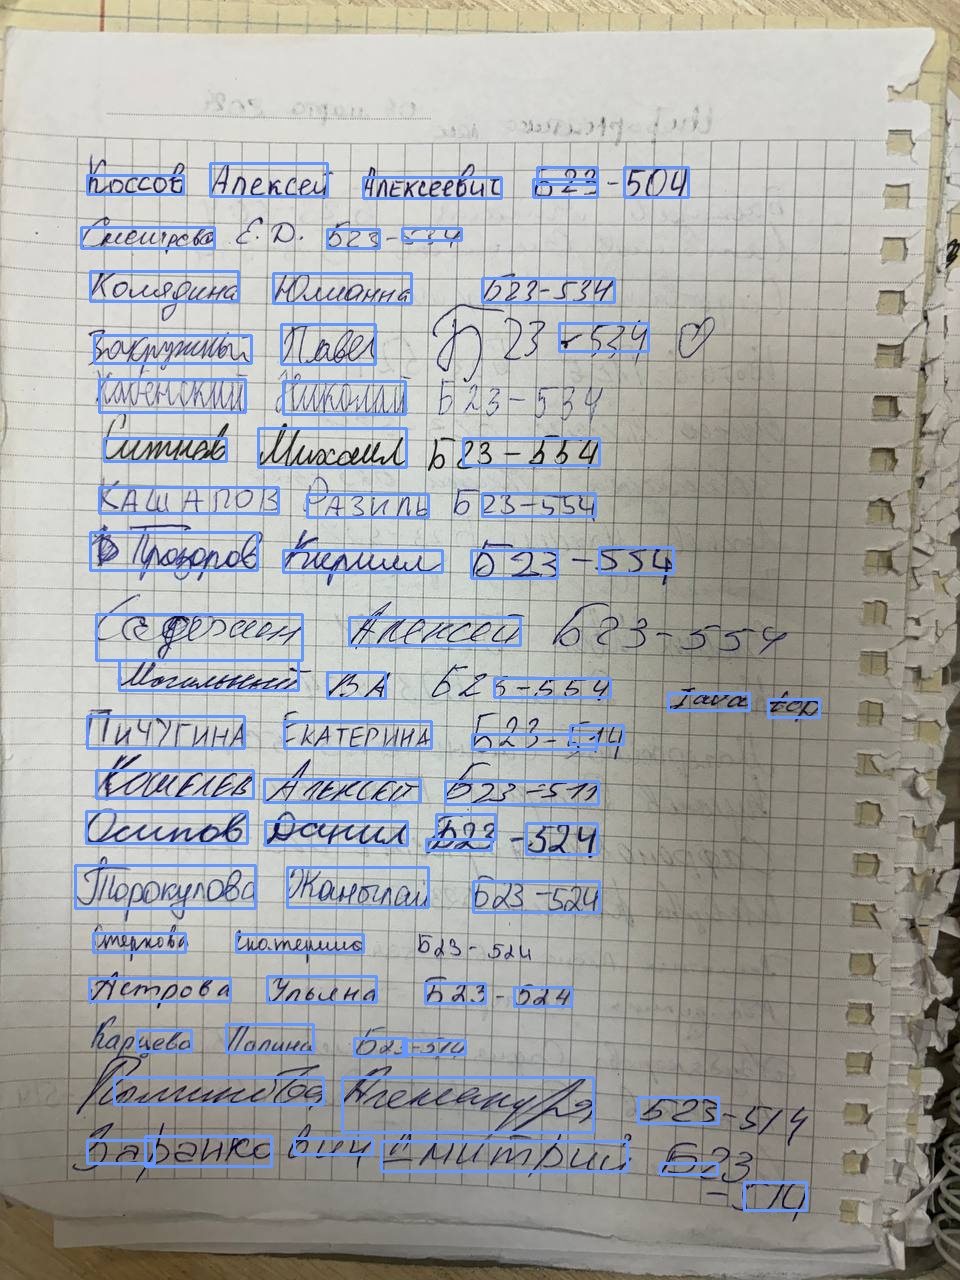 Коссов Алексей Алексеевич Б23-504
Смирнова Е.Д. Б23-534
Колядина Юлианна Б23-534
Закружный Павел Б23-534
Каменский Николай Б23-534
Ситнов Михаил Б23-554
КАШАПОВ РАЗИЛЬ Б23-554
Прозоров Кирилл Б23-554
Алексей Б23-554
Могильный ВА Б23-554
Java
ПИЧУГИНА ЕКАТЕРИНА Б23-514
Кошелев Алексей Б23-511
Осипов Данил Б23-524
Торокулова Жанылай Б23-524
Стеркова Екатерина Б23-524
Астрова Ульяна Б23-524
Карцева Полина Б23-514
Александра Б23-514
Заранко вич Дмитрий Б23
-514